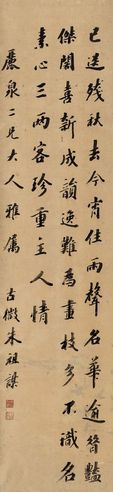 已送残秋去今宵住雨聲名華逾豔
傑閣喜新成韻逸難為畫枝多不識名
素心三兩客珍重主人情
麗泉二兄大人雅屬
古微朱祖謀